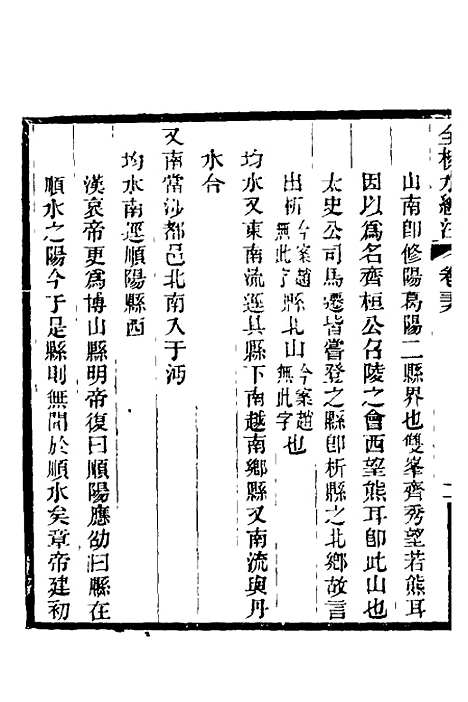 全校水經注 卷
山南卽修陽葛陽二縣界也雙峯齊秀望若熊耳
因以爲名齊桓公召陵之會西望熊耳卽此山也
太史公司馬遷皆嘗登之縣卽析縣之北鄉故言
出析今案趙無此字縣北山今案趙無此字也
均水又東南流逕其縣下南越南鄉縣又南流與丹
水合
又南當涉都邑北南入于沔
均水南逕順陽縣西
漢哀帝更爲博山縣明帝復曰順陽應劭曰縣在
順水之陽今于是縣則無聞於順水矣章帝建初